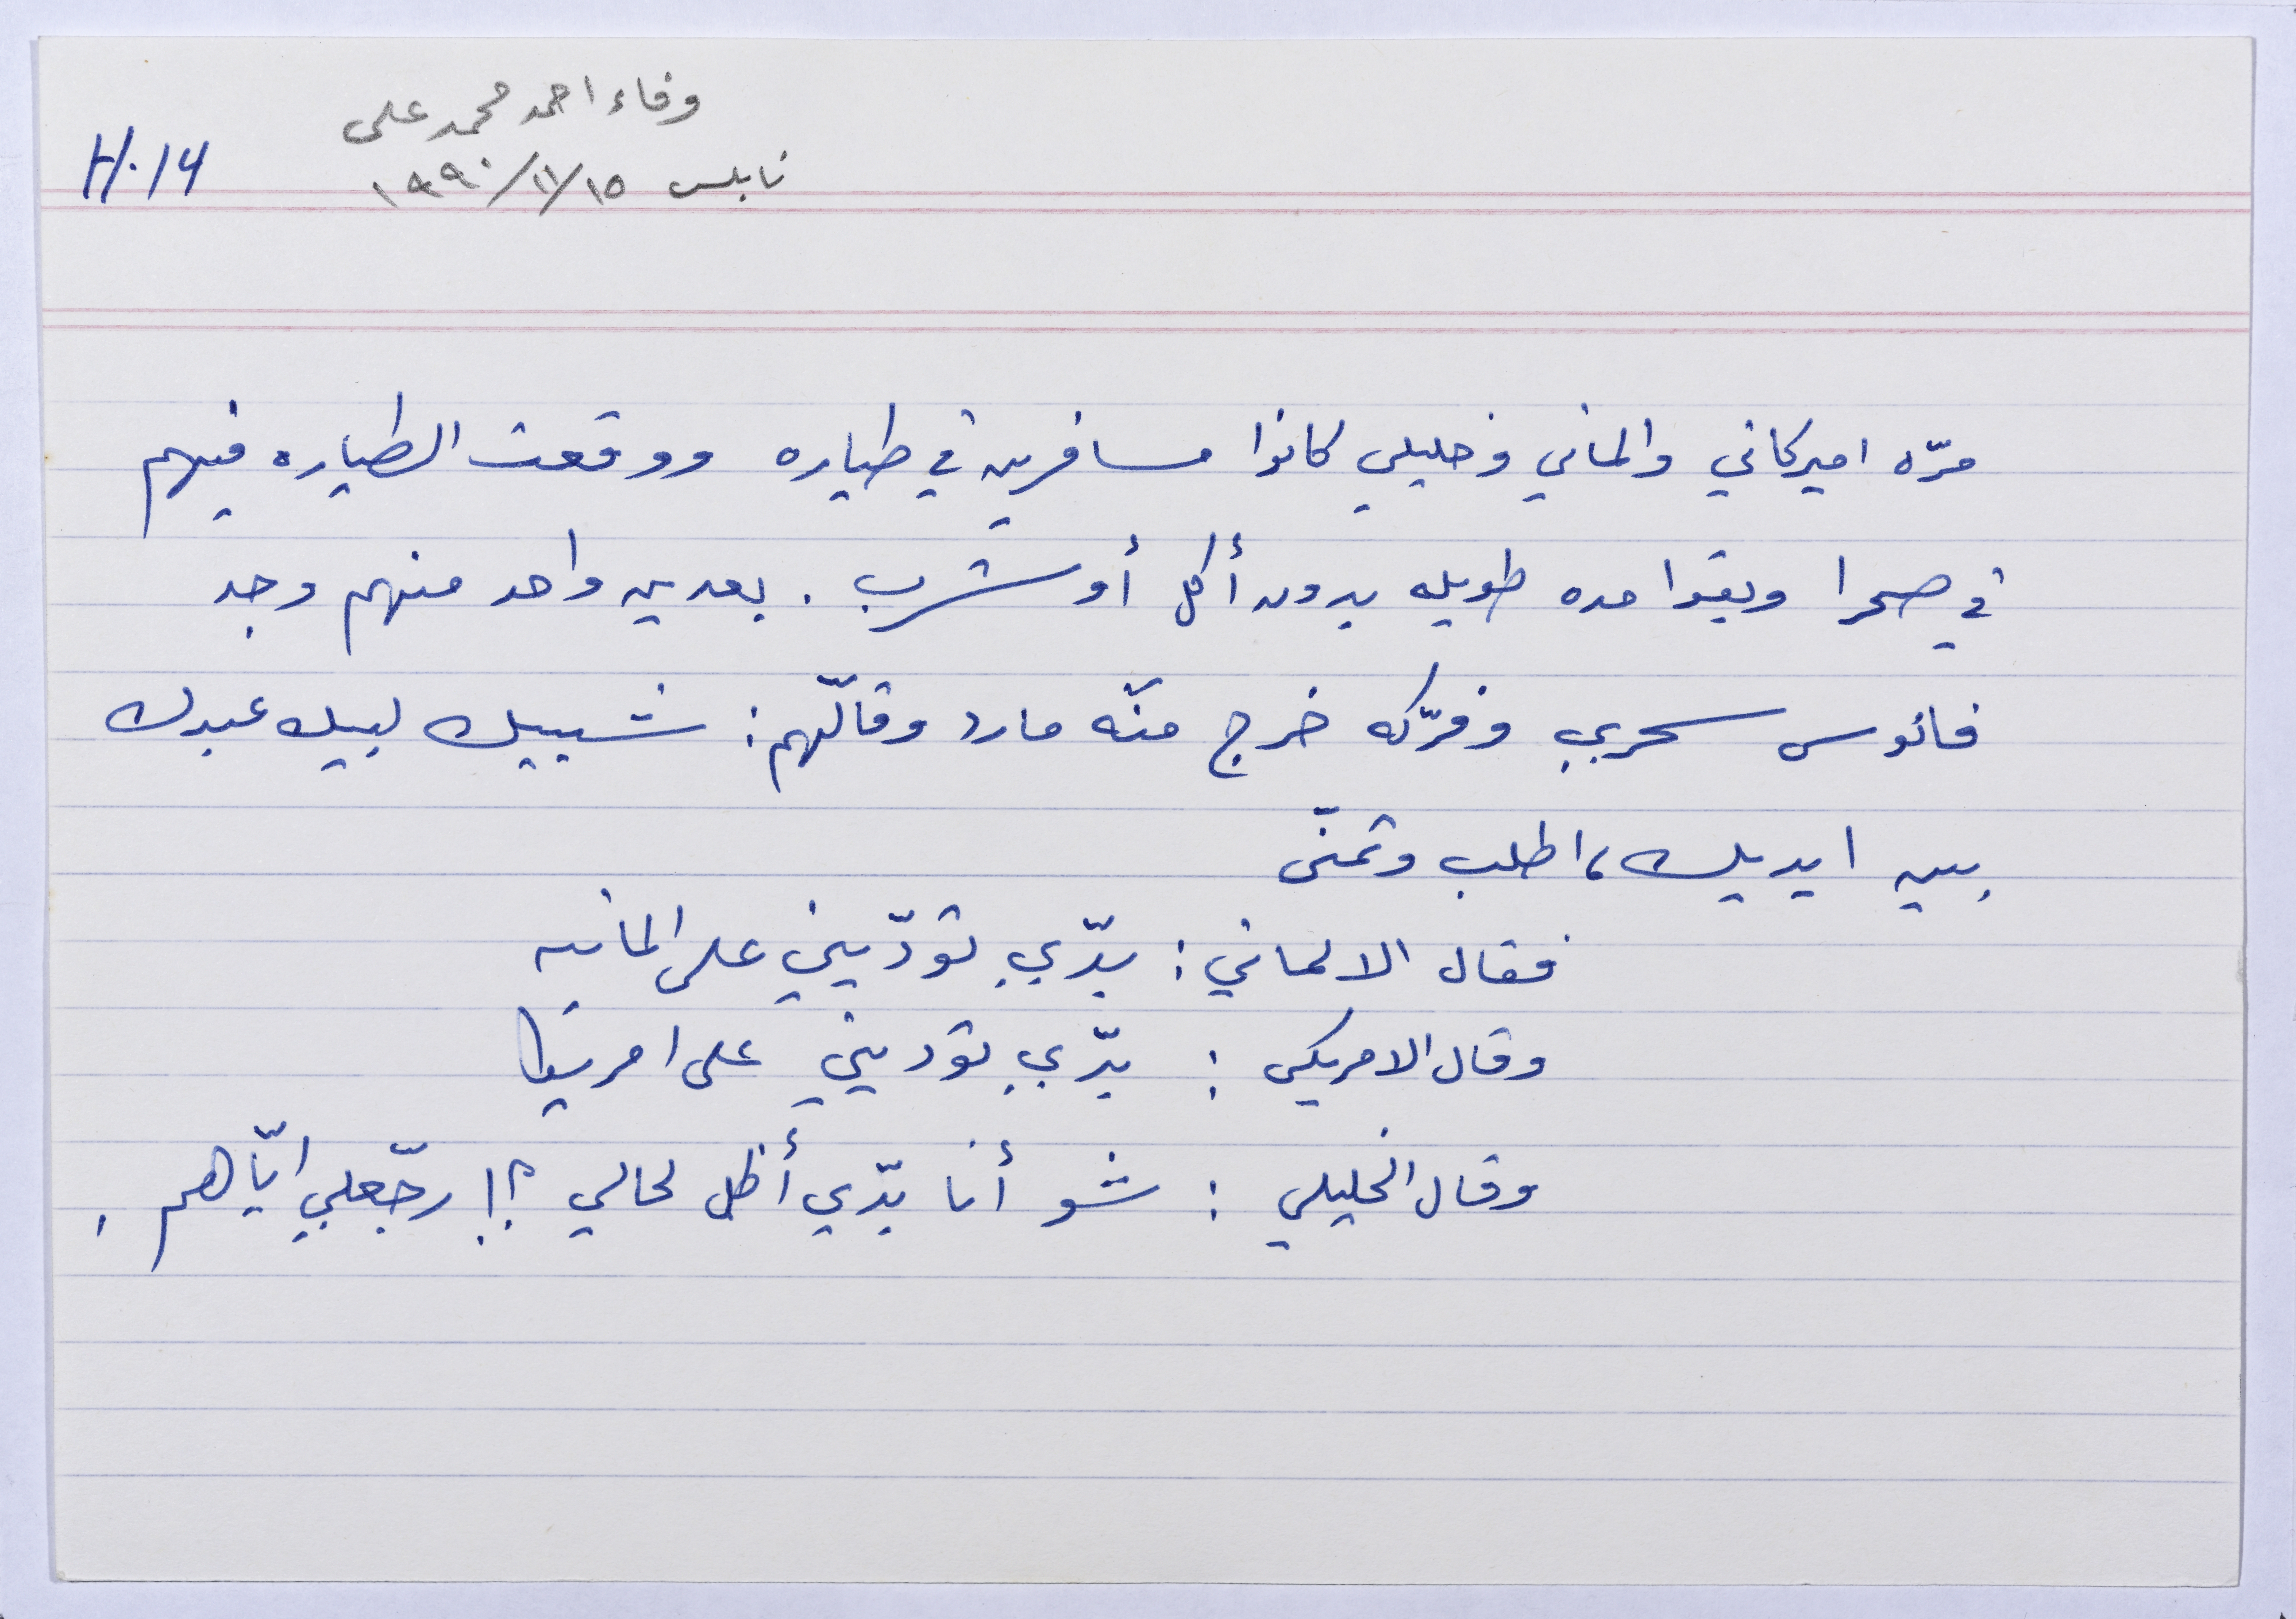 وفاء احمد محمد على
نابلس ١٥/١١/١٩٩٠
H.14
مرّه اميركاني والماني وخليلي كانوا مسافرين في طياره ووقعت الطياره فيهم
في صحرا وبقوا مده طويله بدون أكل أو شرب . بعدين واحد منهم وجد
فانوس سحري وفرّكه خرج منّه مارد وقالّهم : شبيك لبيك عبدك
بين ايديك ، اطلب وتمنّى
فقال الالماني : بدّي تودّيني على المانيه
وقال الامريكي : بدّي توديني على امريكا
وقال الخليلي : شو أنا بدّي أظل لحالي ؟! رجّعلي ايّاهم .